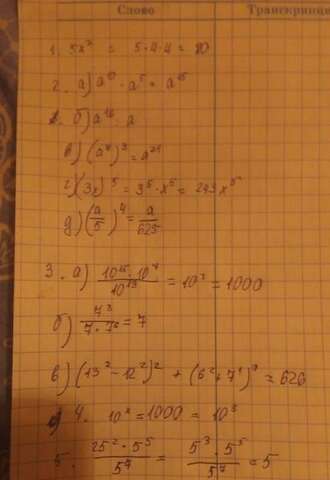 Слово Транскрипция
1. 5x² = 5·4·4 = 80
2. а) a¹⁰ · a⁵ = a¹⁵
б) a¹⁶ : a
в) (a⁷)³ = a²¹
г) (3x)⁵ = 3⁵ · x⁵ = 243x⁵
д) (a/5)⁴ = a/625
3. а) 10¹⁵ · 10⁷ / 10¹⁹ = 10³ = 1000
б) 7⁸ / 7 · 7⁶ = 7
в) (13² - 12²)² + (6² + 7¹)⁰ = 626
4. 10ˣ = 1000 = 10³
5. 25² · 5⁵ / 5⁷ = 5³ · 5⁵ / 5⁷ = 5